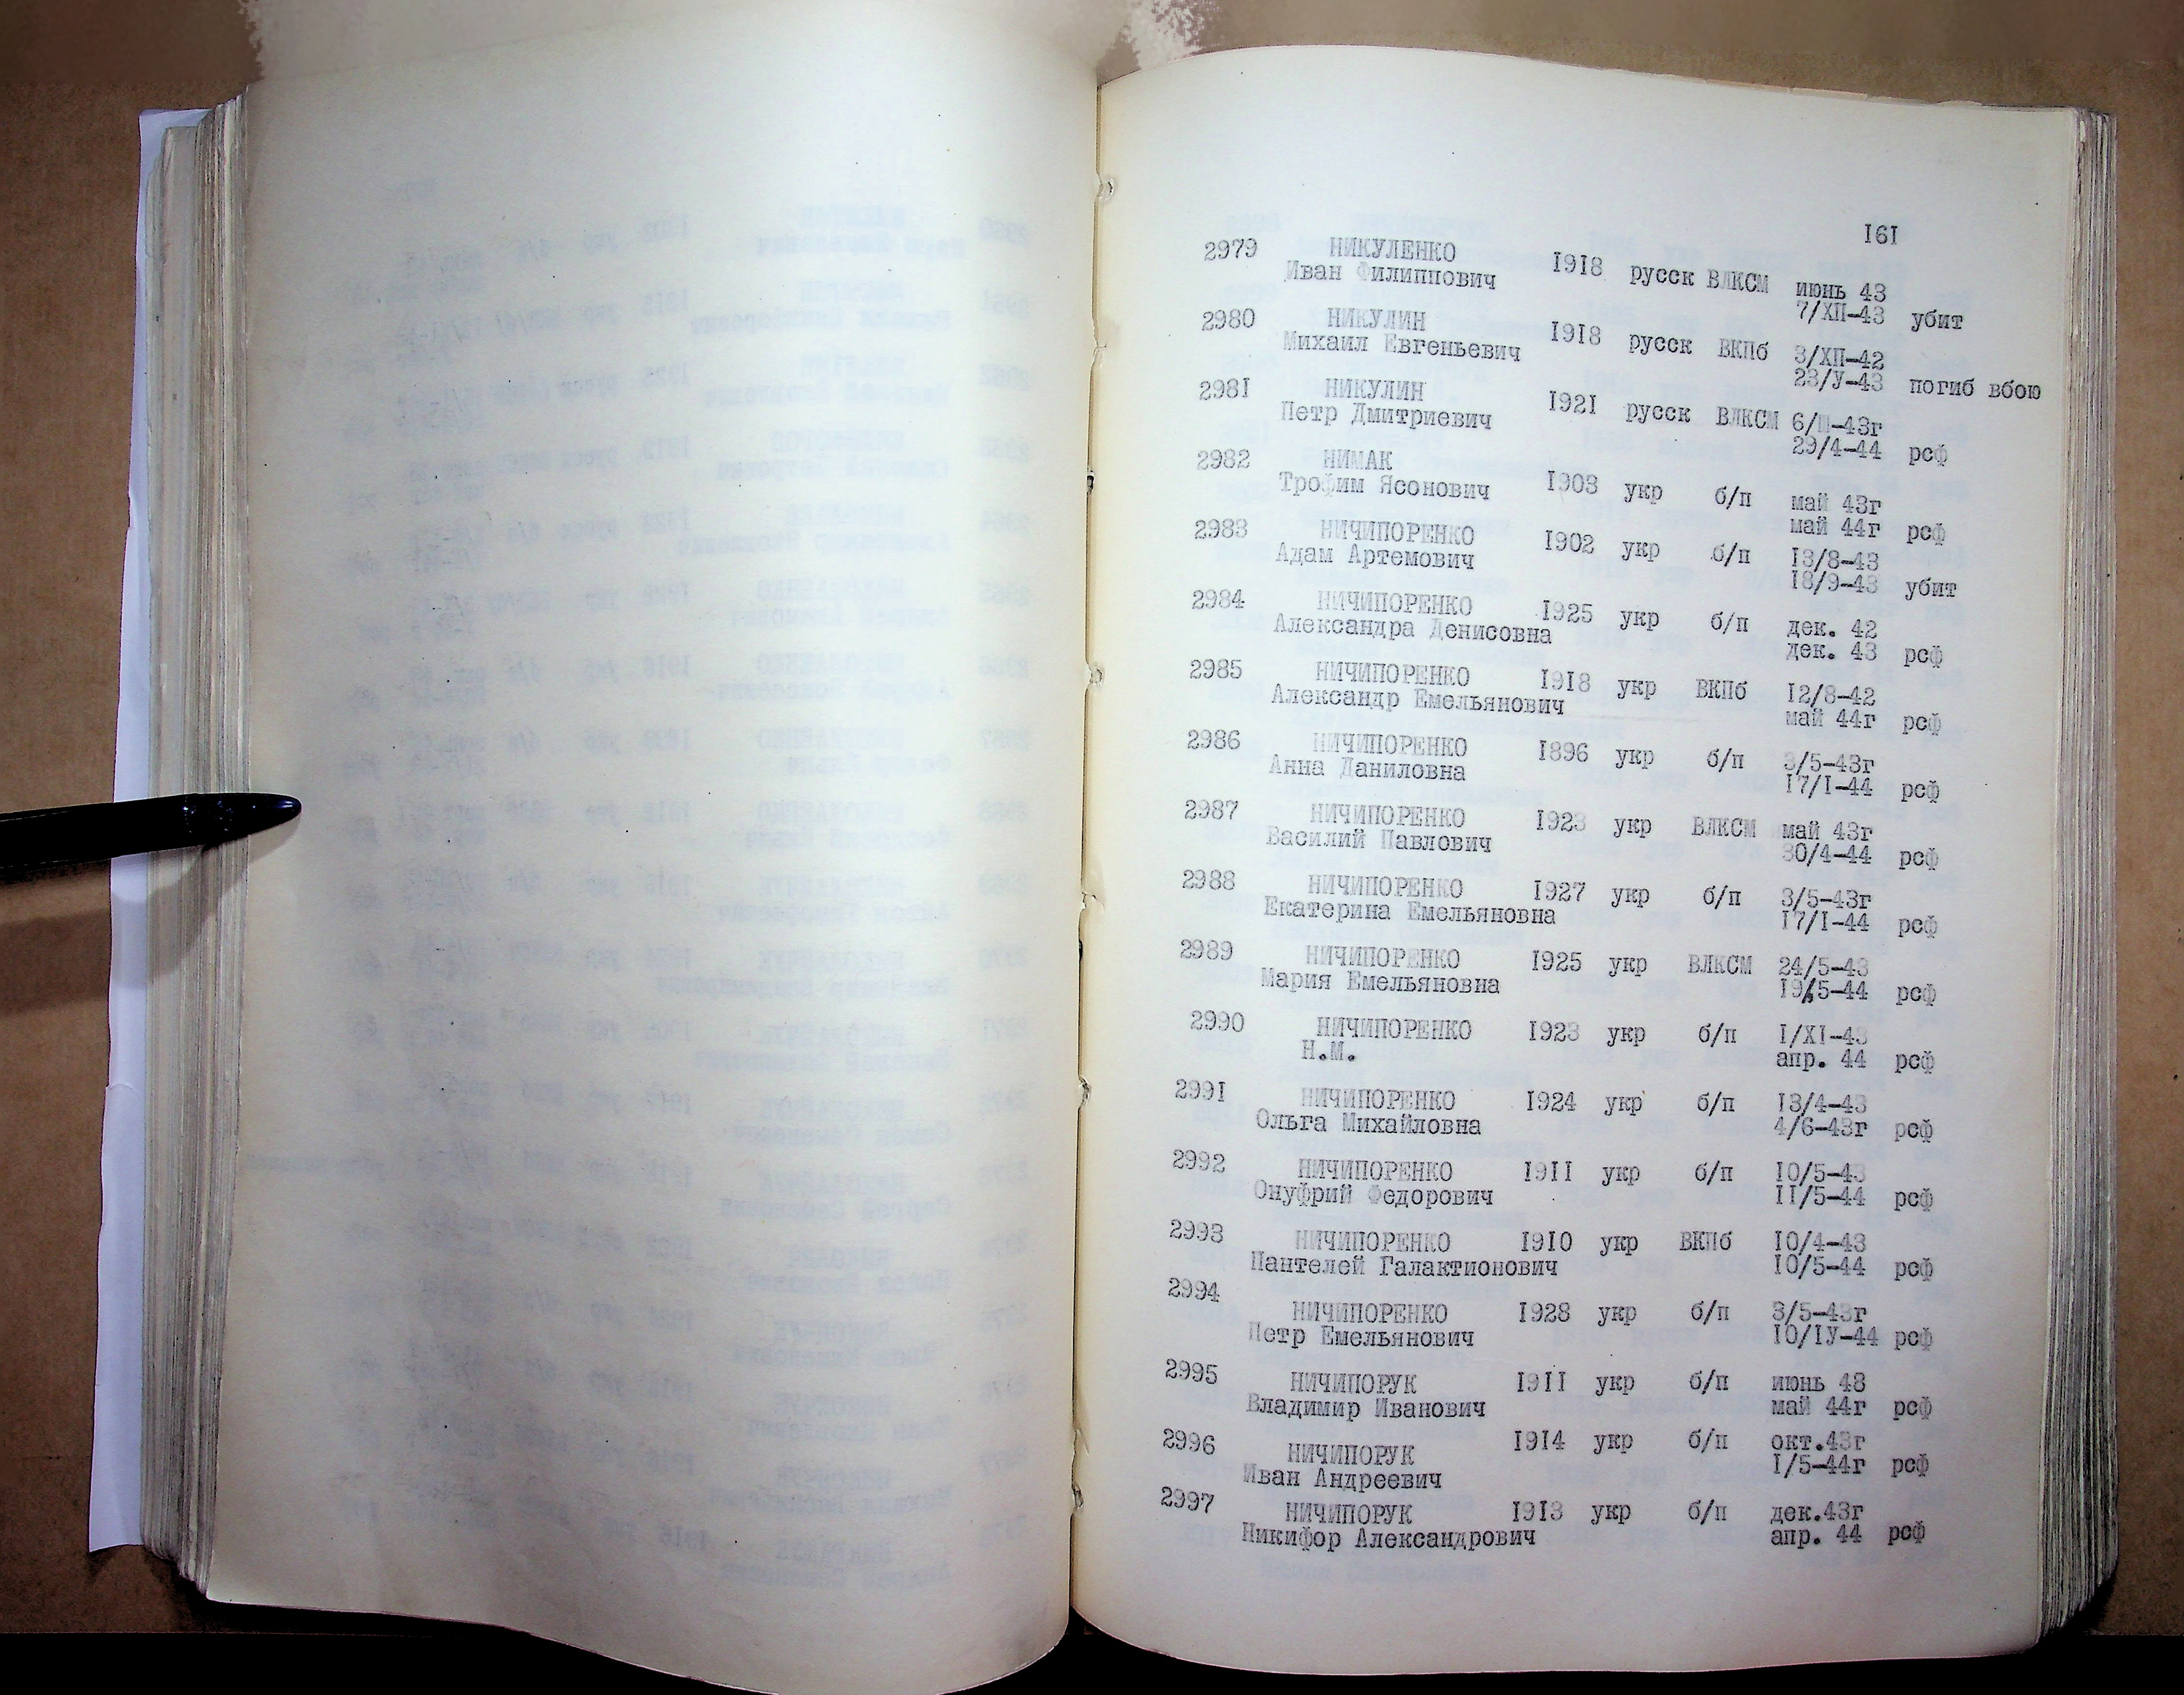 161
2979 НИКУЛЕНКО 1918 русск ВЛКСМ июнь 43
Иван Филиппович 7/ХП-43 убит
2980 НИКУЛИН 1918 русск ВКПб 3/ХП-42
Михаил Евгеньевич 23/У-43 погиб вбою
2981 НИКУЛИН 1921 русск ВЛКСМ 6/П-43г
Петр Дмитриевич 29/4-44 рсф
2982 НИМАК 1903 укр б/п май 43г
Трофим Ясонович май 44г рсф
2983 НИЧИПОРЕНКО 1902 укр б/п 13/8-43
Адам Артемович 18/9-43 убит
2984 НИЧИПОРЕНКО 1925 укр б/п дек. 42
Александра Денисовна дек. 43 рсф
2985 НИЧИПОРЕНКО 1918 укр ВКПб 12/8-42
Александр Емельянович май 44г рсф
2986 НИЧИПОРЕНКО 1896 укр б/п 3/5-43г
Анна Даниловна 17/I-44 рсф
2987 НИЧИПОРЕНКО 1923 укр ВЛКСМ май 43г
Василий Павлович 30/4-44 рсф
2988 НИЧИПОРЕНКО 1927 укр б/п 3/5-43г
Екатерина Емельяновна 17/I-44 рсф
2989 НИЧИПОРЕНКО 1925 укр ВЛКСМ 24/5-43
Мария Емельяновна 19/5-44 рсф
2990 НИЧИПОРЕНКО 1923 укр б/п I/XI-43
Н.М. апр. 44 рсф
2991 НИЧИПОРЕНКО 1924 укр б/п 13/4-43
Ольга Михайловна 4/6-43г рсф
2992 НИЧИПОРЕНКО 1911 укр б/п 10/5-43
Онуфрий Федорович 11/5-44 рсф
2993 НИЧИПОРЕНКО 1910 укр ВКПб 10/4-43
Пантелей Галактионович 10/5-44 рсф
2994 НИЧИПОРЕНКО 1928 укр б/п 3/5-43г
Петр Емельянович 10/IУ-44 рсф
2995 НИЧИПОРУК 1911 укр б/п июнь 43
Владимир Иванович май 44г рсф
2996 НИЧИПОРУК 1914 укр б/п окт.43г
Иван Андреевич I/5-44г рсф
2997 НИЧИПОРУК 1913 укр б/п дек.43г
Никифор Александрович апр. 44 рсф